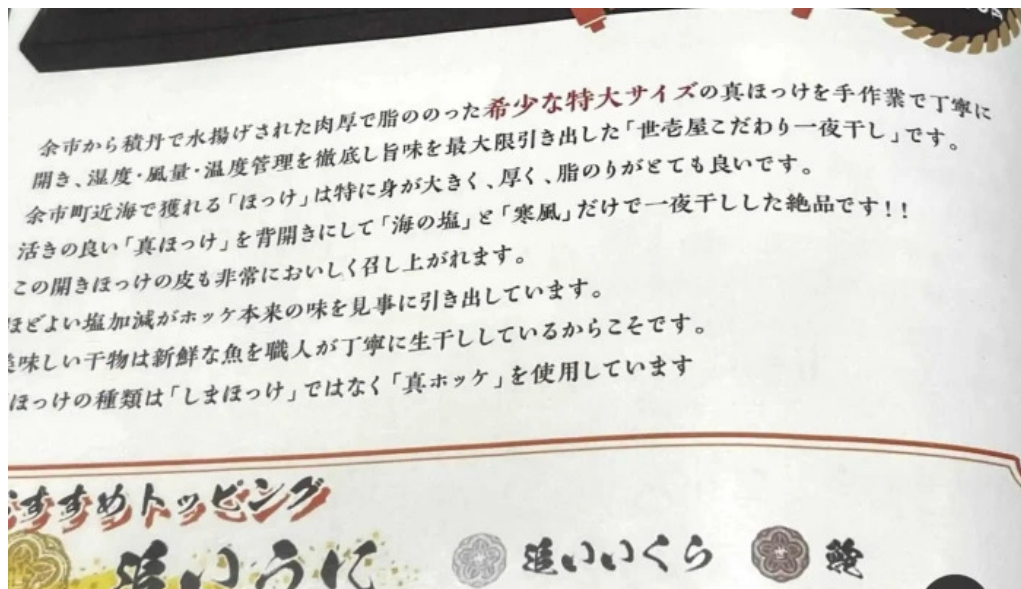 余市から積丹で水揚げされた肉厚で脂ののった希少な特大サイズの真ほっけを手作業で丁寧に
開き、湿度・風量・温度管理を徹底し旨味を最大限引き出した「世壱屋こだわり一夜干し」です。
余市町近海で獲れる「ほっけ」は特に身が大きく、厚く、脂のりがとても良いです。
活きの良い「真ほっけ」を背開きにして「海の塩」と「寒風」だけで一夜干しした絶品です!!
この開きほっけの皮も非常においしく召し上がれます。
ほどよい塩加減がホッケ本来の味を見事に引き出しています。
味しい干物は新鮮な魚を職人が丁寧に生干ししているからこそです。
ほっけの種類は「しまほっけ」ではなく「真ホッケ」を使用しています
すすめトッピング
追いうに
追いいくら